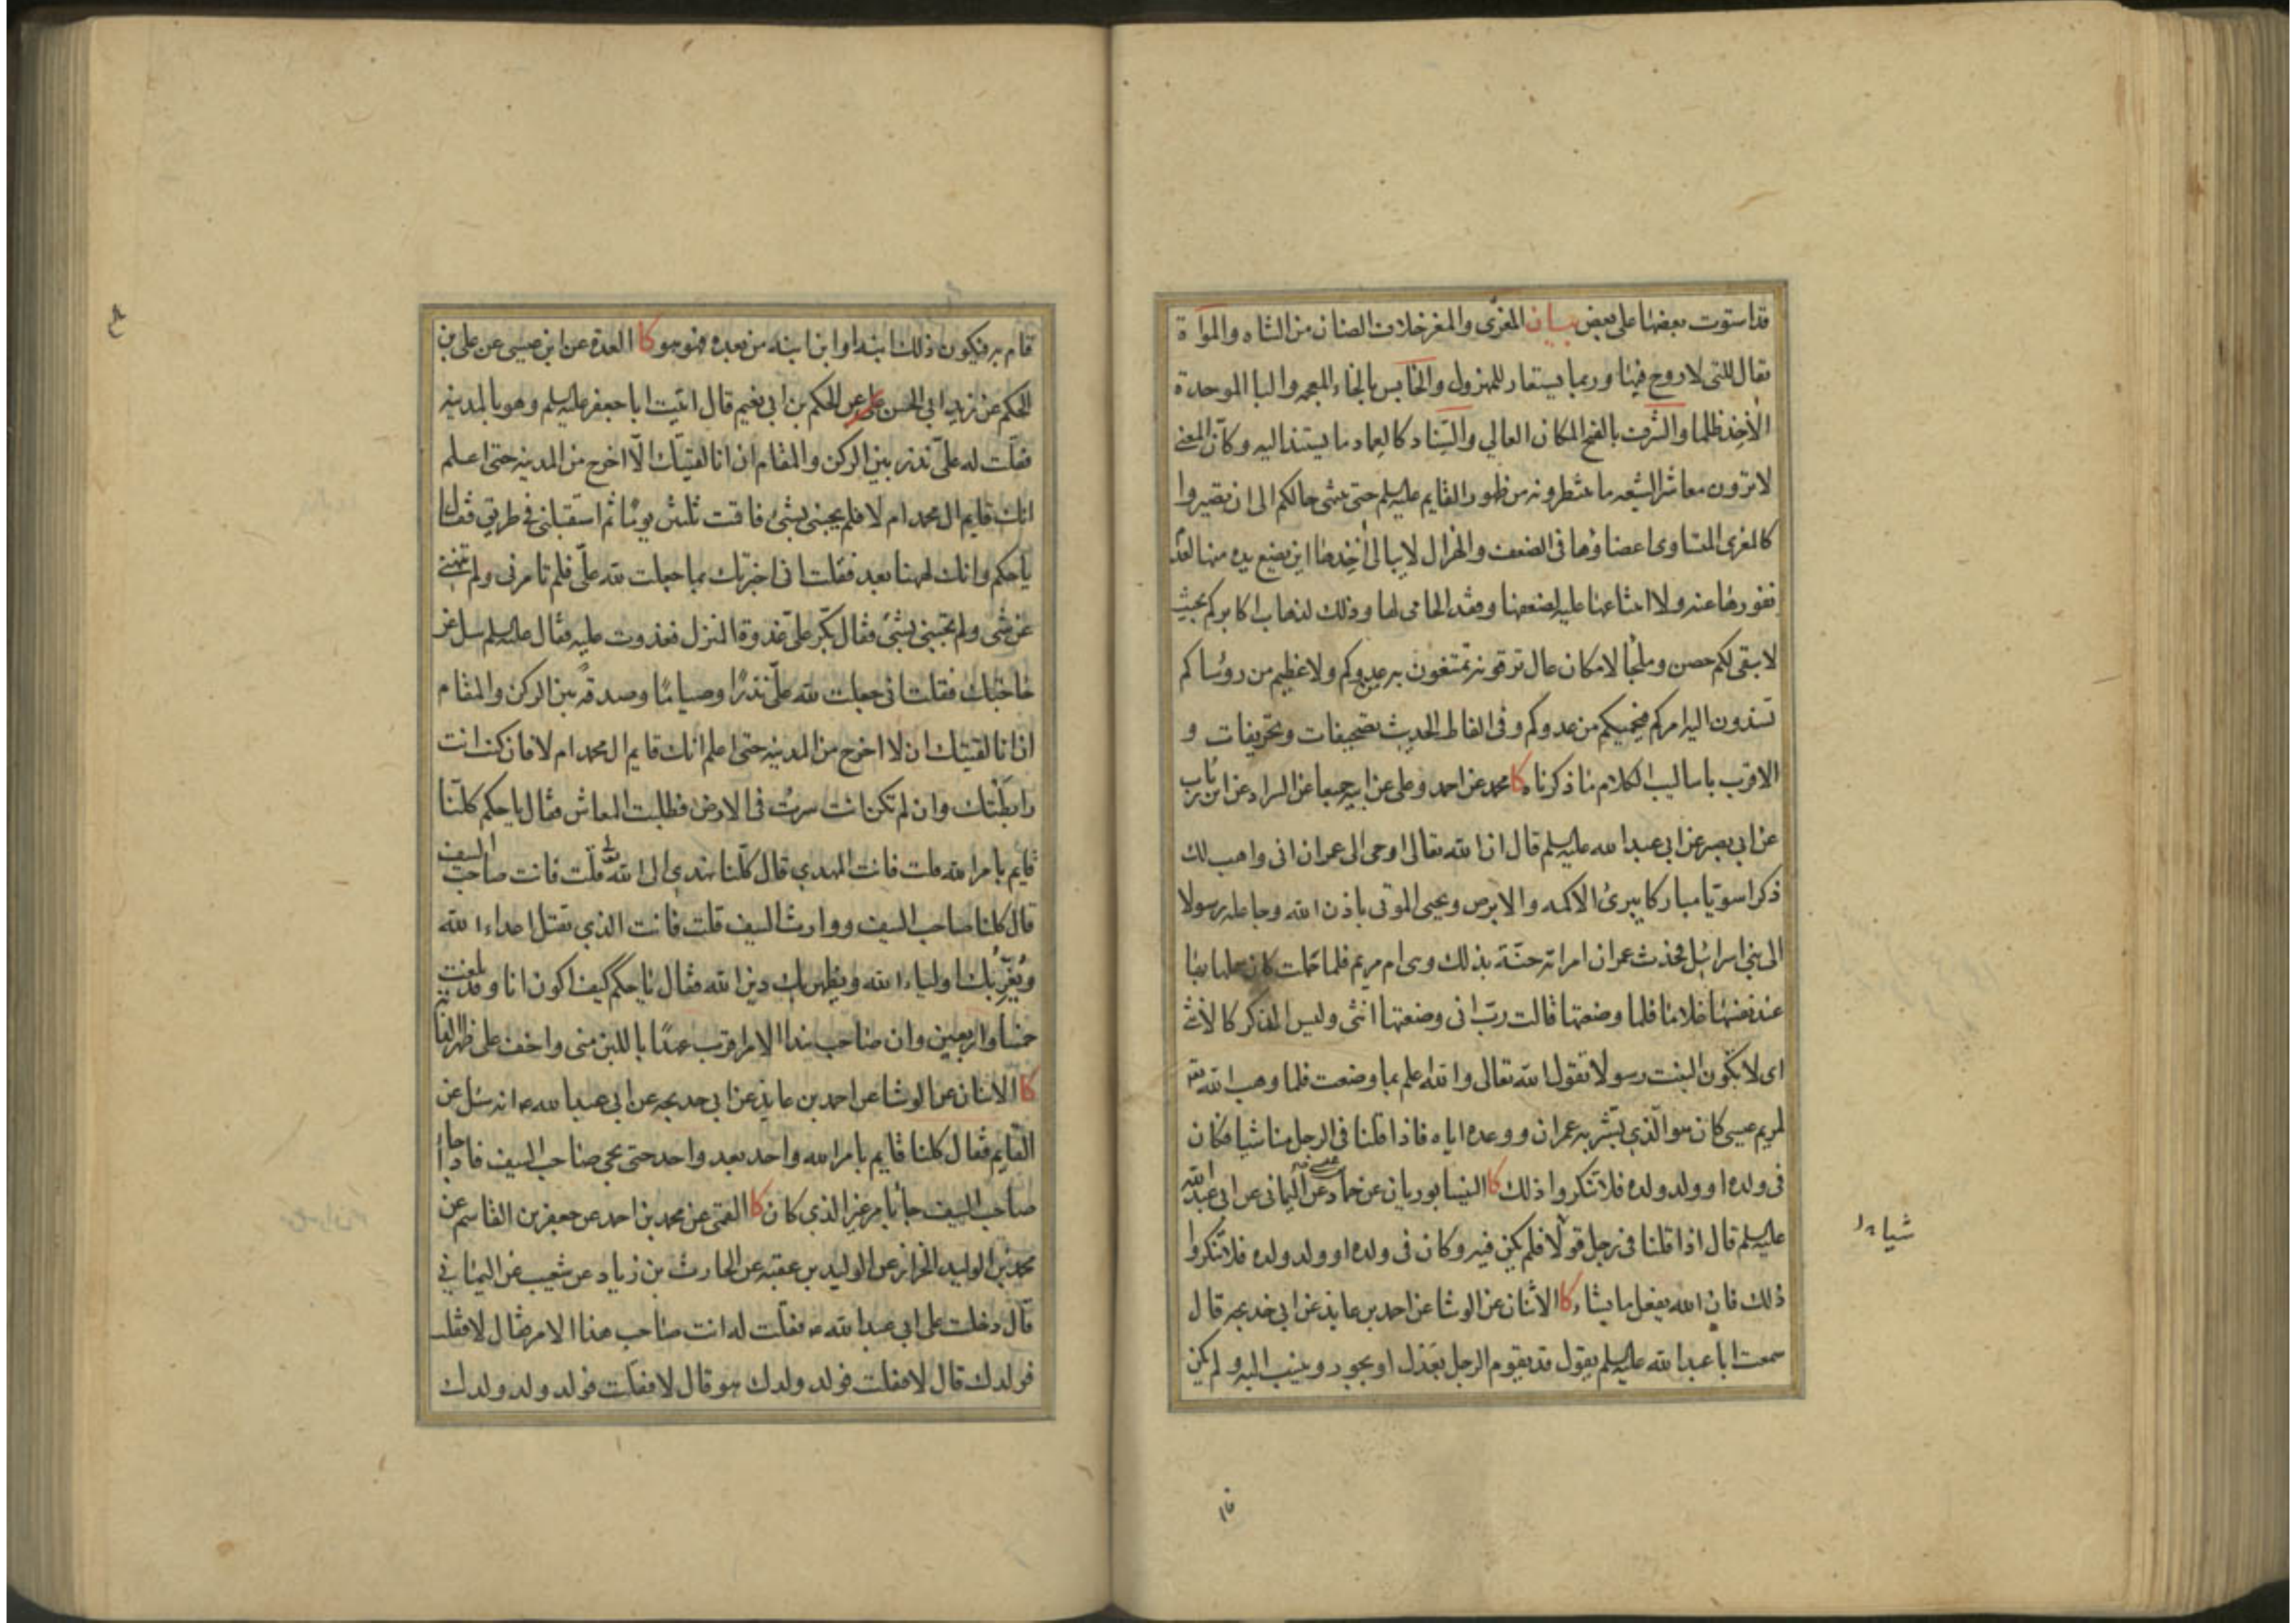 قد استوت بعضها على بعض بيان المعزى والمعز خلاف الضان من الشاه والمواة
يقال للتي لا روح فيها وربما يستعار للمهزول والخابس بالخاء المعجمه والبا الموحدة
الآخذ ظلما والشرف بالفتح المكان العالي والسناد كالعماد ما يستند اليه وكان المعنى
لا ترون معاشر الشيعه ما تنتظرونه من ظهور القايم عليه السلم حتى ينتهى حالكم الى ان تصيروا
كالمعزى المتساوى اعضاؤها فى الضعف والهزال لا يبالى آخذها اين يضع يده منها لعدم
نفورها عنه ولا امتناعها عليه لضعفها وفقد الحامى لها وذلك لذهاب اكابركم بحيث
لا يبقى لكم حصن وملجا لا مكان عال ترقونه تمتنعون به عدوكم ولا عظيم من رؤساكم
تسندون اليه امركم فيحميكم من عدوكم وفى الفاظ الحديث تصحيفات وتحريفات و
الاقرب باساليب الكلام ما ذكرناه كا محمد عن احمد وعلى عن ابيه جميعا عن السراد عن ابن رئاب
عن ابي بصير عن ابي عبد الله عليه السلم قال ان الله تعالى اوحى الى عمران انى واهب لك
ذكرا سويا مباركا يبرئ الاكمه والابرص ويحيى الموتى باذن الله وجاعله رسولا
الى بني اسرائيل فحدث عمران امراته حنّة بذلك وهى ام مريم فلما حملت كان حملها بها
عند نفسها غلاما فلما وضعتها قالت ربّ انى وضعتها انثى وليس الذكر كالانثى
اى لا يكون البنت رسولا يقول الله تعالى والله اعلم بما وضعت فلما وهب الله تع
لمريم عيسى كان هو الذي بشر به عمران ووعده اياه فاذا قلنا فى الرجل منا شيا فكان
فى ولده او ولد ولده فلا تنكروا ذلك كا النيسابوريان عن حماد عن اليمانى عن ابي عبد الله
عليه السلم قال اذا قلنا فى رجل قولا فلم يكن فيه وكان فى ولده او ولد ولده فلا تنكروا
ذلك فان الله يفعل ما يشاء كا الاثنان عن الوشا عن احمد بن عايذ عن ابي خديجه قال
سمعت ابا عبد الله عليه السلم يقول قد يقوم الرجل بعدل او بجور وينسب اليه ولم يكن
قام به فيكون ذلك ابنه او ابن ابنه من بعده فهو هو كا العدة عن ابن عيسى عن على بن
الحكم عن زيد ابي الحسن عن الحكم بن ابي نعيم قال اتيت ابا جعفر عليه السلم وهو بالمدينه
فقلت له علىّ نذر بين الركن والمقام ان انا لقيتك الّا اخرج من المدينه حتى اعلم
انك قايم ال محمد ام لا فلم يجبنى بشئ فاقمت ثلثين يوما ثم استقبلنى فى طريق فقال
ياحكم وانك لههنا بعد فقلت انى اخبرتك بما جعلت لله علىّ فلم تامرنى ولم تنهنى
عن شى ولم تجبنى بشئ فقال بكّر علىّ غدوة المنزل فغدوت عليه فقال عليه السلم سل عن
حاجتك فقلت انى جعلت لله علىّ نذرا وصياما وصدقة بين الركن والمقام
ان انا لقيتك ان لا اخرج من المدينه حتى اعلم انك قايم ال محمد ام لا فان كنت انت
رابطتك وان لم تكن انت سرت فى الارض فطلبت المعاش فقال ياحكم كلّنا
قايم بامر الله قلت فانت المهدي قال كلّنا نهدى الى الله قلت فانت صاحب السيف
قال كلنا صاحب السيف ووارث السيف قلت فانت الذي تقتل اعداء الله
ويعزّ بك اولياء الله ويظهر بك دين الله فقال ياحكم كيف اكون انا وقد بلغت
خمسا واربعين وان صاحب هذا الامر اقرب عهدا باللبن منى واخف على ظهر الدابة
كا الاثنان عن الوشا عن احمد بن عايذ عن ابى خديجه عن ابى عبد الله ع انه سئل عن
القايم فقال كلنا قايم بامر الله واحد بعد واحد حتى يجى صاحب السيف فاذا جا
صاحب السيف جا بامر غير الذي كان كا القمى عن محمد بن احمد عن جعفر بن القاسم عن
محمد بن الوليد الخزاز عن الوليد بن عقبه عن الحارث بن زياد عن شعيب عن اليمانى
قال دخلت على ابى عبد الله ع فقلت له انت صاحب هذا الامر فقال لا فقلت
فولدك قال لا فقلت فولد ولدك هو قال لا فقلت فولد ولد ولدك